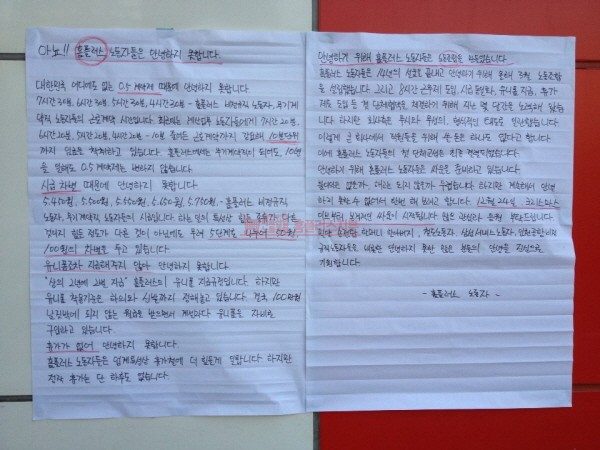 아뇨!! 홈플러스 노동자들은 안녕하지 못합니다.
대한민국 어디에도 없는 0.5 계약제 때문에 안녕하지 못합니다
7시간 30분, 6시간 30분, 5시간 30분, 4시간 30분 - 홈플러스 비정규직 노동자, 무기계
약직 노동자들의 근로계약 시간입니다. 회사는 레인업무 노동자들에게 7시간 20분,
6시간 20분, 5시간 20분, 4시간 20분 - 10분 줄여든 근로계약까지 강요하며 10분단위
까지 임금으로 착취하고 있습니다. 홈플러스에서는 무기계약직이 되어도, 10년
을 일해도 0.5 계약제는 변하지 않습니다.
시급 차별 때문에 안녕하지 못합니다
5,450원, 5,500원, 5,550원, 5,650원, 5,750원 - 홈플러스 비정규직
노동자, 무기계약직 노동자들의 시급입니다. 하는 일의 특성상 힘든
것이지 힘든 정도가 다른 것이 아닌데도 무려 5단계로 나누어 50원,
100원의 차별을 두고 있습니다.
유니폼조차 지급해주지 않아 안녕하지 못합니다.
"상의 2년에 2번 지급" 홈플러스의 유니폼 지급규정입니다. 하지만
유니폼 착용기준은 하의와 신발까지 정해놓고 있습니다. 결국 100만원
남짓밖에 되지 않는 월급을 받으면서 계절마다 유니폼을 자비로
구입하고 있습니다.
휴가가 없어 안녕하지 못합니다.
홈플러스 노동자들은 업계특성상 휴가철에 더 힘들게 일합니다. 하지만
정작 휴가는 단 하루도 없습니다.
안녕하기 위해 홈플러스 노동자들은 노동조합을 만들었습니다.
홈플러스 노동자들은 14년의 침묵을 끝내고 안녕하기 위해 올해 3월 노동조합
을 설립했습니다. 그리고 8시간 근무제 도입, 시급 단일화, 유니폼 지급, 휴가
제도 도입 등 첫 단체협약을 체결하기 위해 지난 몇 달간을 노력해 왔습
니다. 하지만 회사측은 무시와 무성의, 형식적인 태도로 일관했습니다.
이렇게 큰 회사에서 직원들을 위해 쓸 돈은 하나도 없다고 합니다.
이에 홈플러스 노동자들의 첫 단체교섭은 최종 결렬되었습니다.
안녕하기 위해 홈플러스 노동자들은 싸움을 준비하고 있습니다.
불이익은 없을까, 해고는 되지 않을까 두렵습니다. 하지만 계속해서 안녕
하지 못할 수 없어서 한번 해 보려고 합니다. 12월 24일, 크리스마스
이브부터 보여지는 싸움이 시작됩니다. 많은 관심과 응원 부탁드립니다.
규직노동자들을 비롯한 안녕하지 못한 많은 분들의 안녕을 진심으로
기원합니다.
- 홈플러스 노동자 -